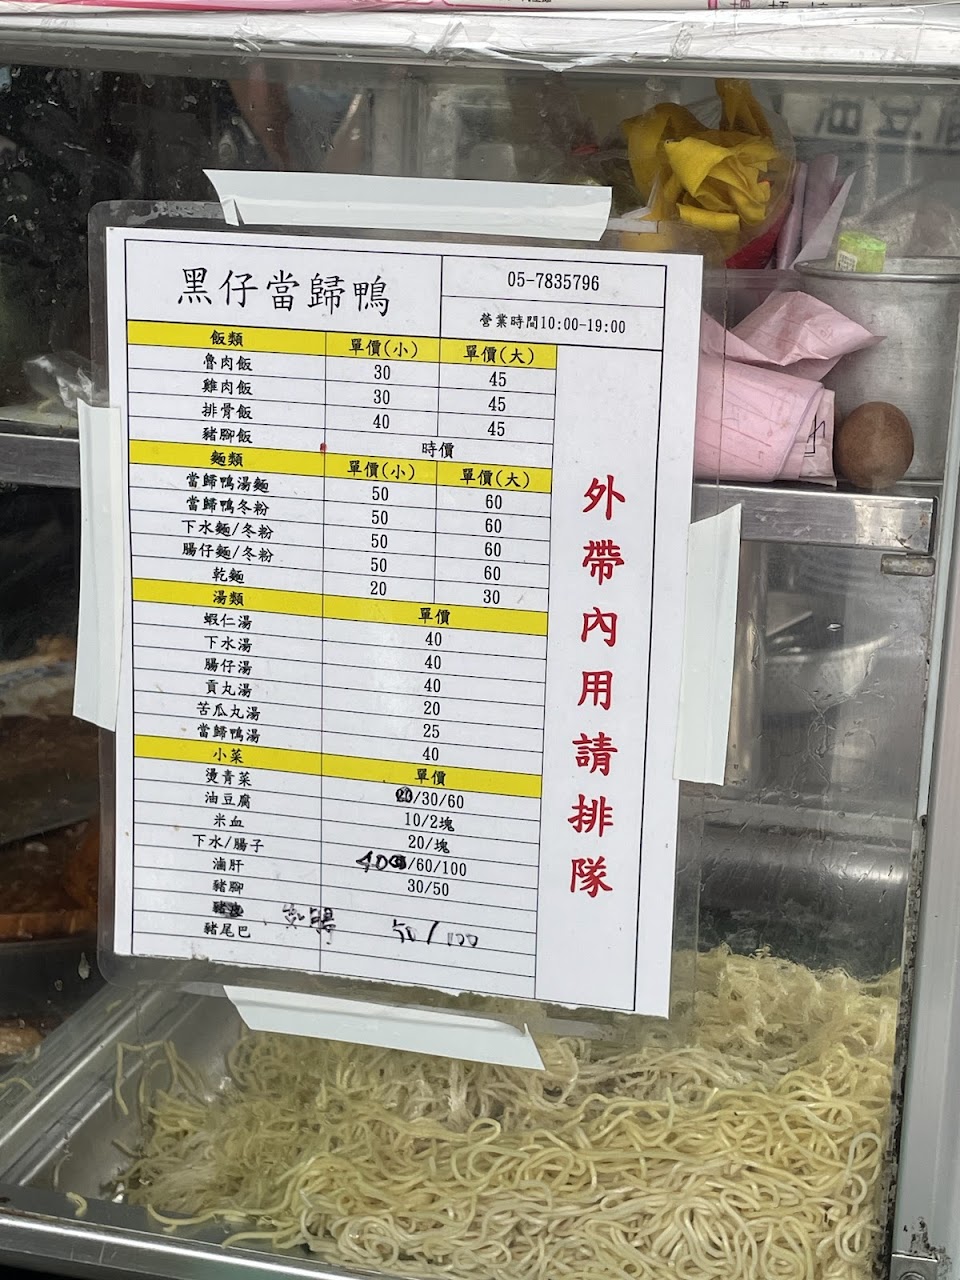 黑仔當歸鴨
05-7835796
營業時間10:00-19:00
飯類 單價(小) 單價(大)
魯肉飯 30 45
雞肉飯 30 45
排骨飯 40 45
豬腳飯 時價
麵類 單價(小) 單價(大)
當歸鴨湯麵 50 60
當歸鴨冬粉 50 60
下水麵/冬粉 50 60
腸仔麵/冬粉 50 60
乾麵 20 30
湯類 單價
蝦仁湯 40
下水湯 40
腸仔湯 40
貢丸湯 20
苦瓜丸湯 25
當歸鴨湯 40
小菜 單價
燙青菜 /30/60
油豆腐 10/2塊
米血 20/塊
下水/腸子 40 /60/100
滷肝 30/50
豬腳
豬 50/100
豬尾巴
外帶內用請排隊